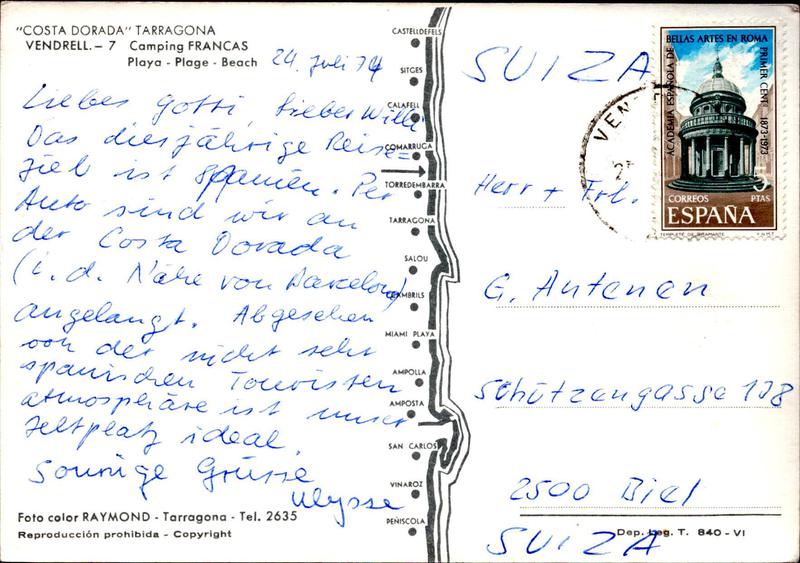 "COSTA DORADA" TARRAGONA
VENDRELL. - 7 Camping FRANCAS
Playa - Plage - Beach
24. Juli 74
Liebes Gotti, Lieber Willi
Das diesjährige Reise=
ziel ist Spanien. Per
Auto sind wir an
der Costa Dorada
(i. d. Nähe von Barcelona)
angelangt. Abgesehen
von der nicht sehr
spanischen Touristen
atmosphäre ist unser
Zeltplatz ideal.
Sonnige Grüsse
Ulysse
Foto color RAYMOND - Tarragona - Tel. 2635
Reproducción prohibida - Copyright
CASTELLDEFELS
SITGES
CALAFELL
COMARRUGA
TORREDEMBARRA
TARRAGONA
SALOU
CAMBRILS
MIAMI PLAYA
AMPOLLA
AMPOSTA
SAN CARLOS
VINAROZ
PEÑISCOLA
SUIZA
VEN
ACADEMIA ESPAÑOLA DE BELLAS ARTES EN ROMA
PRIMER CENT. 1873-1973
5 PTAS
CORREOS
ESPAÑA
TEMPLETE DE BRAMANTE F.N.M.T.
Herr + Frl.
G. Antenen
Schützengasse 178
2500 Biel
SUIZA
Dep. Leg. T. 840 - VI